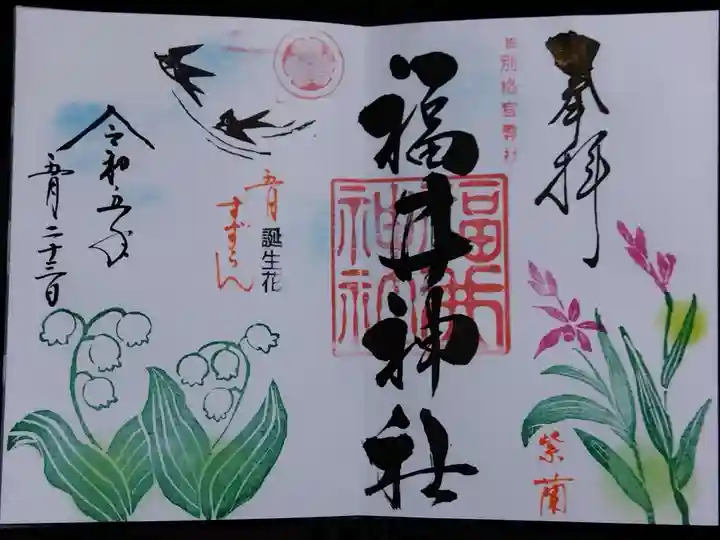 奉拝
別格官幣社
福井神社
福井神社
紫蘭
五月
誕生花
すずらん
令和五年
五月二十三日